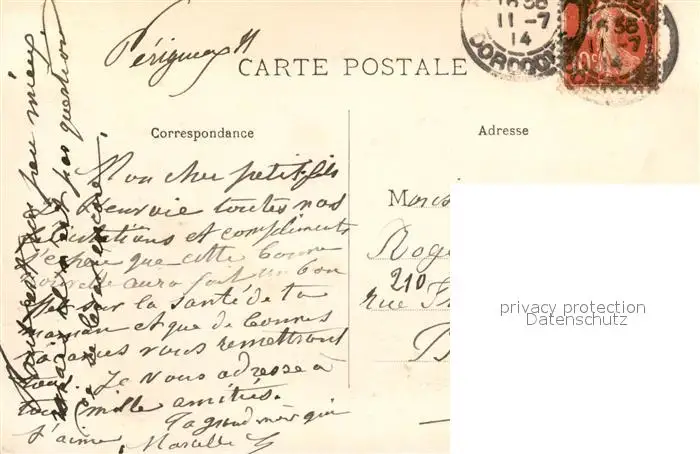 Périgueux 11
CARTE POSTALE
16 30
11 -7
14
DORDOGNE
10c
Correspondance
Adresse
Mon cher petit-fils
Je t'envoie toutes nos
félicitations et compliments
j'espère que cette bonne
nouvelle aura fait un bon
effet sur la santé de ta
maman et que de bonnes
vacances vous remettront
tous. Je vous adresse à
tous mille amitiés.
Ta grand-mère qui
t'aime, Marcelle
un peu mieux
mais il n'est pas question
de la encore.
Mons
Roge
210
rue
privacy protection
Datenschutz